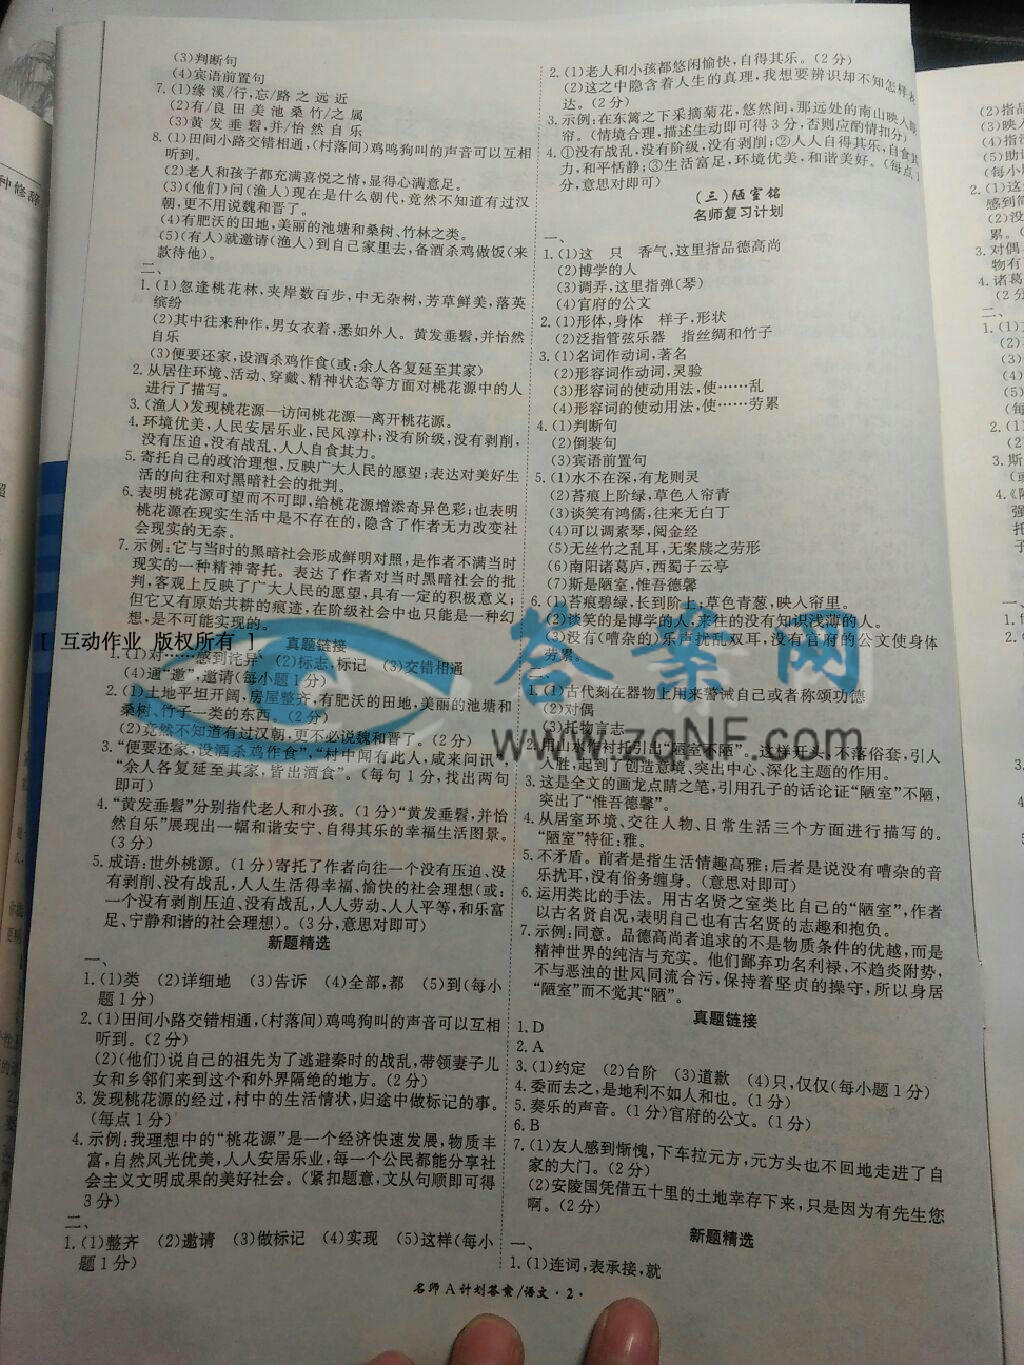 (3)判断句
(4)宾语前置句
7.(1)缘 溪/行,忘/路 之 远 近
(2)有/良 田 美 池 桑 竹/之 属
(3)黄 发 垂 髫,并/怡 然 自 乐
8.(1)田间小路交错相通,(村落间)鸡鸣狗叫的声音可以互相
听到。
(2)老人和孩子都充满喜悦之情,显得心满意足。
(3)(他们)问(渔人)现在是什么朝代,竟然不知道有过汉
朝,更不用说魏和晋了。
(4)有肥沃的田地,美丽的池塘和桑树、竹林之类。
(5)(有人)就邀请(渔人)到自己家里去,备酒杀鸡做饭(来
款待他)。
二、
1.(1)忽逢桃花林、夹岸数百步,中无杂树,芳草鲜美,落英
缤纷
(2)其中往来种作,男女衣着,悉如外人。黄发垂髫,并怡然
自乐
(3)便要还家,设酒杀鸡作食(或:余人各复延至其家)
2.从居住环境、活动、穿戴、精神状态等方面对桃花源中的人
进行了描写。
3.(渔人)发现桃花源—访问桃花源—离开桃花源。
4.环境优美,人民安居乐业,民风淳朴;没有阶级,没有剥削,
没有压迫,没有战乱,人人自食其力。
5.寄托自己的政治理想,反映广大人民的愿望;表达对美好生
活的向往和对黑暗社会的批判。
6.表明桃花源可望而不可即,给桃花源增添奇异色彩;也表明
桃花源在现实生活中是不存在的,隐含了作者无力改变社
会现实的无奈。
7.示例:它与当时的黑暗社会形成鲜明对照,是作者不满当时
现实的一种精神寄托。表达了作者对当时黑暗社会的批
判,客观上反映了广大人民的愿望,具有一定的积极意义;
但它又有原始共耕的痕迹,在阶级社会中也只能是一种幻
想,是不可能实现的。
[ 互动作业 版权所有 ]
真题链接
1.(1)对……感到诧异 (2)标志,标记 (3)交错相通
(4)通“邀”,邀请(每小题1分)
2.(1)土地平坦开阔,房屋整齐,有肥沃的田地,美丽的池塘和
桑树、竹子一类的东西。(2分)
(2)竟然不知道有过汉朝,更不必说魏和晋了。(2分)
3.“便要还家,设酒杀鸡作食”,“村中闻有此人,咸来问讯”
“余人各复延至其家,皆出酒食”。(每句1分,找出两句
即可)
4.“黄发垂髫”分别指代老人和小孩。(1分)“黄发垂髫,并怡
然自乐”展现出一幅和谐安宁、自得其乐的幸福生活图景。
(3分)
5.成语:世外桃源。(1分)寄托了作者向往一个没有压迫、没
有剥削、没有战乱,人人生活得幸福、愉快的社会理想(或:
一个没有剥削压迫、没有战乱,人人劳动、人人平等,和乐富
足、宁静和谐的社会理想)。(3分,意思对即可)
新题精选
一、
1.(1)类 (2)详细地 (3)告诉 (4)全部,都 (5)到(每小
题1分)
2.(1)田间小路交错相通,(村落间)鸡鸣狗叫的声音可以互相
听到。(2分)
(2)(他们)说自己的祖先为了逃避秦时的战乱,带领妻子儿
女和乡邻们来到这个和外界隔绝的地方。(2分)
3.发现桃花源的经过,村中的生活情状,归途中做标记的事。
(每点1分)
4.示例:我理想中的“桃花源”是一个经济快速发展,物质丰
富,自然风光优美,人人安居乐业,每一个公民都能分享社
会主义文明成果的美好社会。(紧扣题意,文从句顺即可得
3分)
二、
1.(1)整齐 (2)邀请 (3)做标记 (4)实现 (5)这样(每小
题1分)
2.(1)老人和小孩都悠闲愉快,自得其乐。(2分)
(2)这之中隐含着人生的真理,我想要辨识却不知怎样表
达。(2分)
3.示例:在东篱之下采摘菊花,悠然间,那远处的南山映入眼
帘。(情境合理,描述生动即可得3分,否则应酌情扣分)
4.①没有战乱,没有阶级,没有剥削;②人人自得其乐,自食其
力,和平恬静;③生活富足,环境优美,和谐美好。(每点1
分,意思对即可)
(三)陋室铭
名师复习计划
一、
1.(1)这 只 香气,这里指品德高尚
(2)博学的人
(3)调弄,这里指弹(琴)
(4)官府的公文
2.(1)形体,身体 样子,形状
(2)泛指管弦乐器 指丝绸和竹子
3.(1)名词作动词,著名
(2)形容词作动词,灵验
(3)形容词的使动用法,使……乱
(4)形容词的使动用法,使……劳累
4.(1)判断句
(2)倒装句
(3)宾语前置句
5.(1)水不在深,有龙则灵
(2)苔痕上阶绿,草色入帘青
(3)谈笑有鸿儒,往来无白丁
(4)可以调素琴,阅金经
(5)无丝竹之乱耳,无案牍之劳形
(6)南阳诸葛庐,西蜀子云亭
(7)斯是陋室,惟吾德馨
6.(1)苔痕碧绿,长到阶上;草色青葱,映入帘里。
(2)谈笑的是博学的人,来往的没有知识浅薄的人。
(3)没有(嘈杂的)乐声扰乱双耳,没有官府的公文使身体
劳累。
二、
1.(1)古代刻在器物上用来警诫自己或者称颂功德
(2)对偶
(3)托物言志
2.用山水作衬托引出“陋室不陋”。这样开头,不落俗套,引人
入胜,起到了创造意境、突出中心、深化主题的作用。
3.这是全文的画龙点睛之笔,引用孔子的话论证“陋室”不陋,
突出了“惟吾德馨”。
4.从居室环境、交往人物、日常生活三个方面进行描写的。
“陋室”特征:雅。
5.不矛盾。前者是指生活情趣高雅;后者是说没有嘈杂的音
乐扰耳,没有俗务缠身。(意思对即可)
6.运用类比的手法。用古名贤之室类比自己的“陋室”,作者
以古名贤自况,表明自己也有古名贤的志趣和抱负。
7.示例:同意。品德高尚者追求的不是物质条件的优越,而是
精神世界的纯洁与充实。他们鄙弃功名利禄,不趋炎附势,
不与恶浊的世风同流合污,保持着坚贞的操守,所以身居
“陋室”而不觉其“陋”。
真题链接
1.D
2.A
3.(1)约定 (2)台阶 (3)道歉 (4)只,仅仅(每小题1分)
4.委而去之,是地利不如人和也。(1分)
5.奏乐的声音。(1分)官府的公文。(1分)
6.B
7.(1)友人感到惭愧,下车拉元方,元方头也不回地走进了自
家的大门。(2分)
(2)安陵国凭借五十里的土地幸存下来,只是因为有先生您
啊。(2分)
新题精选
一、
1.(1)连词,表承接,就
名师A计划答案/语文·2·
答案网
www.zqNF.com